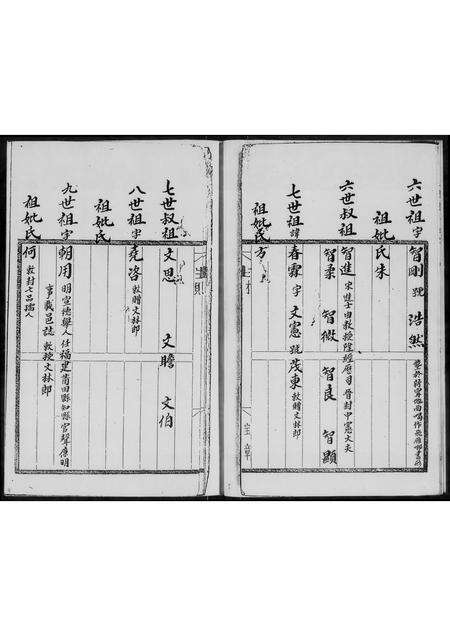 六世祖字智剛號浩然
祖妣氏朱
六世叔祖智進宋進士由教授陞經歷司晉封中憲大夫
智柔 智微 智良 智顯
七世祖諱春霖字文憲號茂東敕贈文林郎
祖妣氏方
七世叔祖文思 文瞻 文伯
八世祖字堯咨敕贈文林郎
祖妣氏
九世祖字朝用明宣德舉人任福建莆田縣知縣官聲廉明
事載邑誌敕授文林郎
祖妣氏何敕封七品孺人